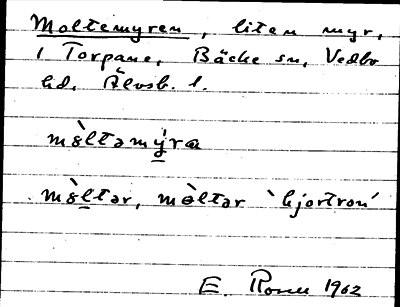 Moltemyren, liten myr,
i Torpane, Bäcke sn, Vedbo
hd, Älvsb. l.
mòltamy̱ra
mòḻtər, mòltər 'hjortron'
E. Rosen 1962